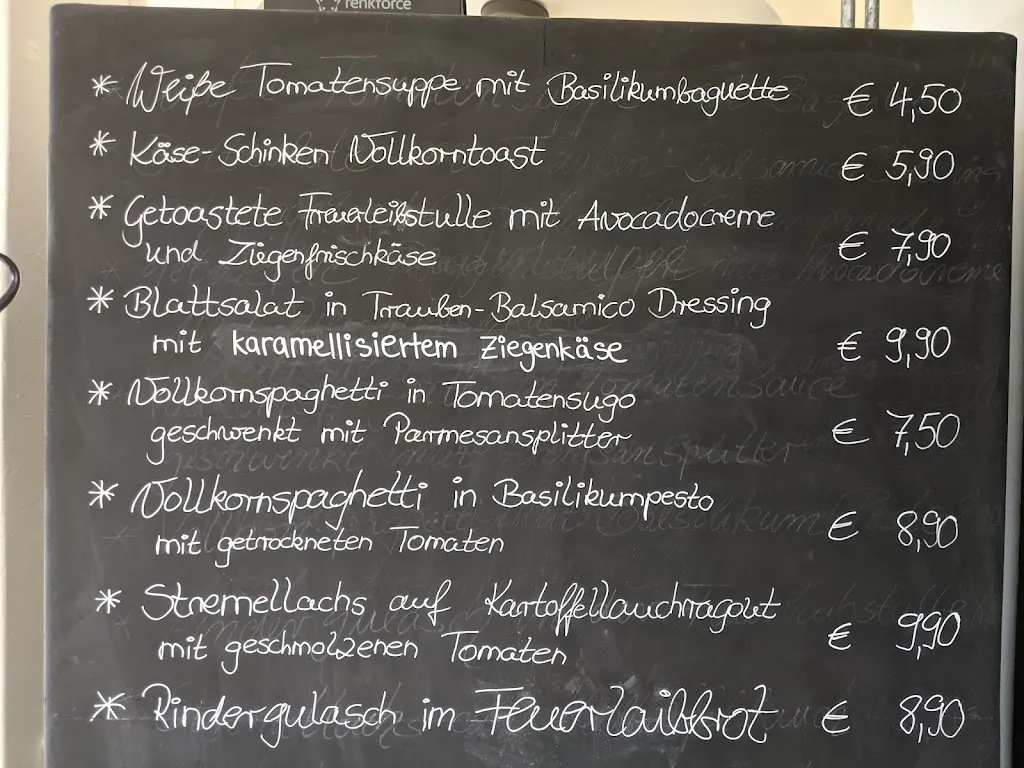 renkforce
* Weiße Tomatensuppe mit Basilikumbaguette € 4,50
* Käse-Schinken Vollkorntoast € 5,90
* Getoastete Feuerleibstulle mit Avocadocreme
und Ziegenfrischkäse € 7,90
* Blattsalat in Trauben-Balsamico Dressing
mit karamellisiertem Ziegenkäse € 9,90
* Vollkornspaghetti in Tomatensugo
geschwenkt mit Parmesansplitter € 7,50
* Vollkornspaghetti in Basilikumpesto
mit getrockneten Tomaten € 8,90
* Stremellachs auf Kartoffellauchragout
mit geschmolzenen Tomaten € 9,90
* Rindergulasch im Feuerlaibbrot € 8,90